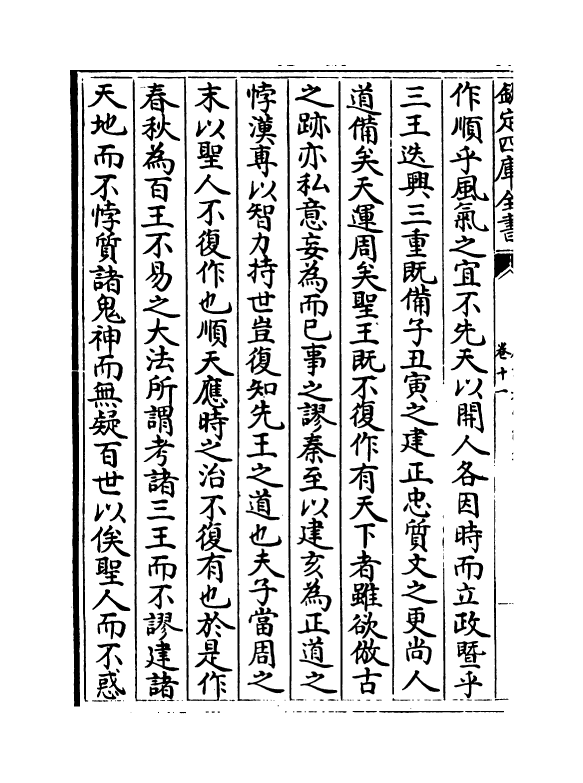 欽定四庫全書
卷十一
作順乎風氣之宜不先天以開人各因時而立政曁乎
三王迭興三重既備子丑寅之建正忠質文之更尚人
道備矣天運周矣聖王既不復作有天下者雖欲倣古
之跡亦私意妄為而已事之謬秦至以建亥為正道之
悖漢専以智力持世豈復知先王之道也夫子當周之
末以聖人不復作也順天應時之治不復有也於是作
春秋為百王不易之大法所謂考諸三王而不謬建諸
天地而不悖質諸鬼神而無疑百世以俟聖人而不惑